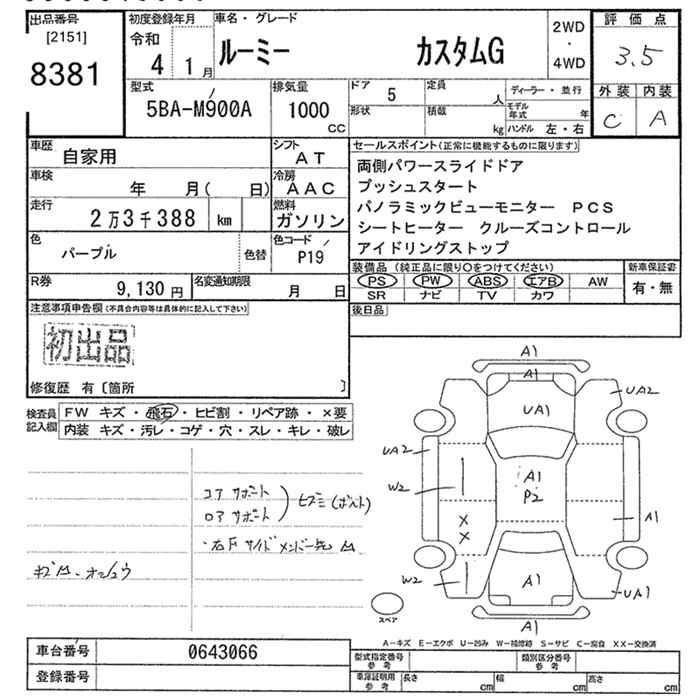 出品番号
[2151]
8381
初度登録年月
令和
4 1月
車名・グレード
ルーミー カスタムG
2WD
・
4WD
評価点
3.5
外装 内装
C A
型式
5BA-M900A
排気量
1000
CC
ドア 5
形状
定員 人
積載 kg
ディーラー・並行
モデル年式 年
ハンドル 左・右
車歴
自家用
シフト
AT
車検
年 月( 日)
冷房
AAC
走行
2万3千388 km
燃料
ガソリン
色
パープル
色替
色コード
P19
R券
9,130円
名変通知期限
月 日
セールスポイント(正常に機能するものに限ります)
両側パワースライドドア
プッシュスタート
パノラミックビューモニター PCS
シートヒーター クルーズコントロール
アイドリングストップ
装備品 (純正品に限り○をつけてください)
PS PW ABS エアB AW
SR ナビ TV カワ
新車保証書
有・無
後日品
注意事項申告欄(不具合内容等は具体的に記入して下さい)
初出品
修復歴 有〔箇所 〕
検査員
記入欄
FW キズ・飛石・ヒビ割・リペア跡・×要
内装 キズ・汚レ・コゲ・穴・スレ・キレ・破レ
コアサポート
ロアサポート
A1
A1
UA1
UA2
UA2
A1
P2
W2
A1
X
X
W2
A1
UA1
A1
スペア
A-キズ E-エクボ U-凹み W-補修跡 S-サビ C-腐食 XX-交換済
車台番号 0643066
登録番号
型式指定番号
参考
類別区分番号
参考
車庫証明用
参考
長さ cm 幅 cm 高さ cm